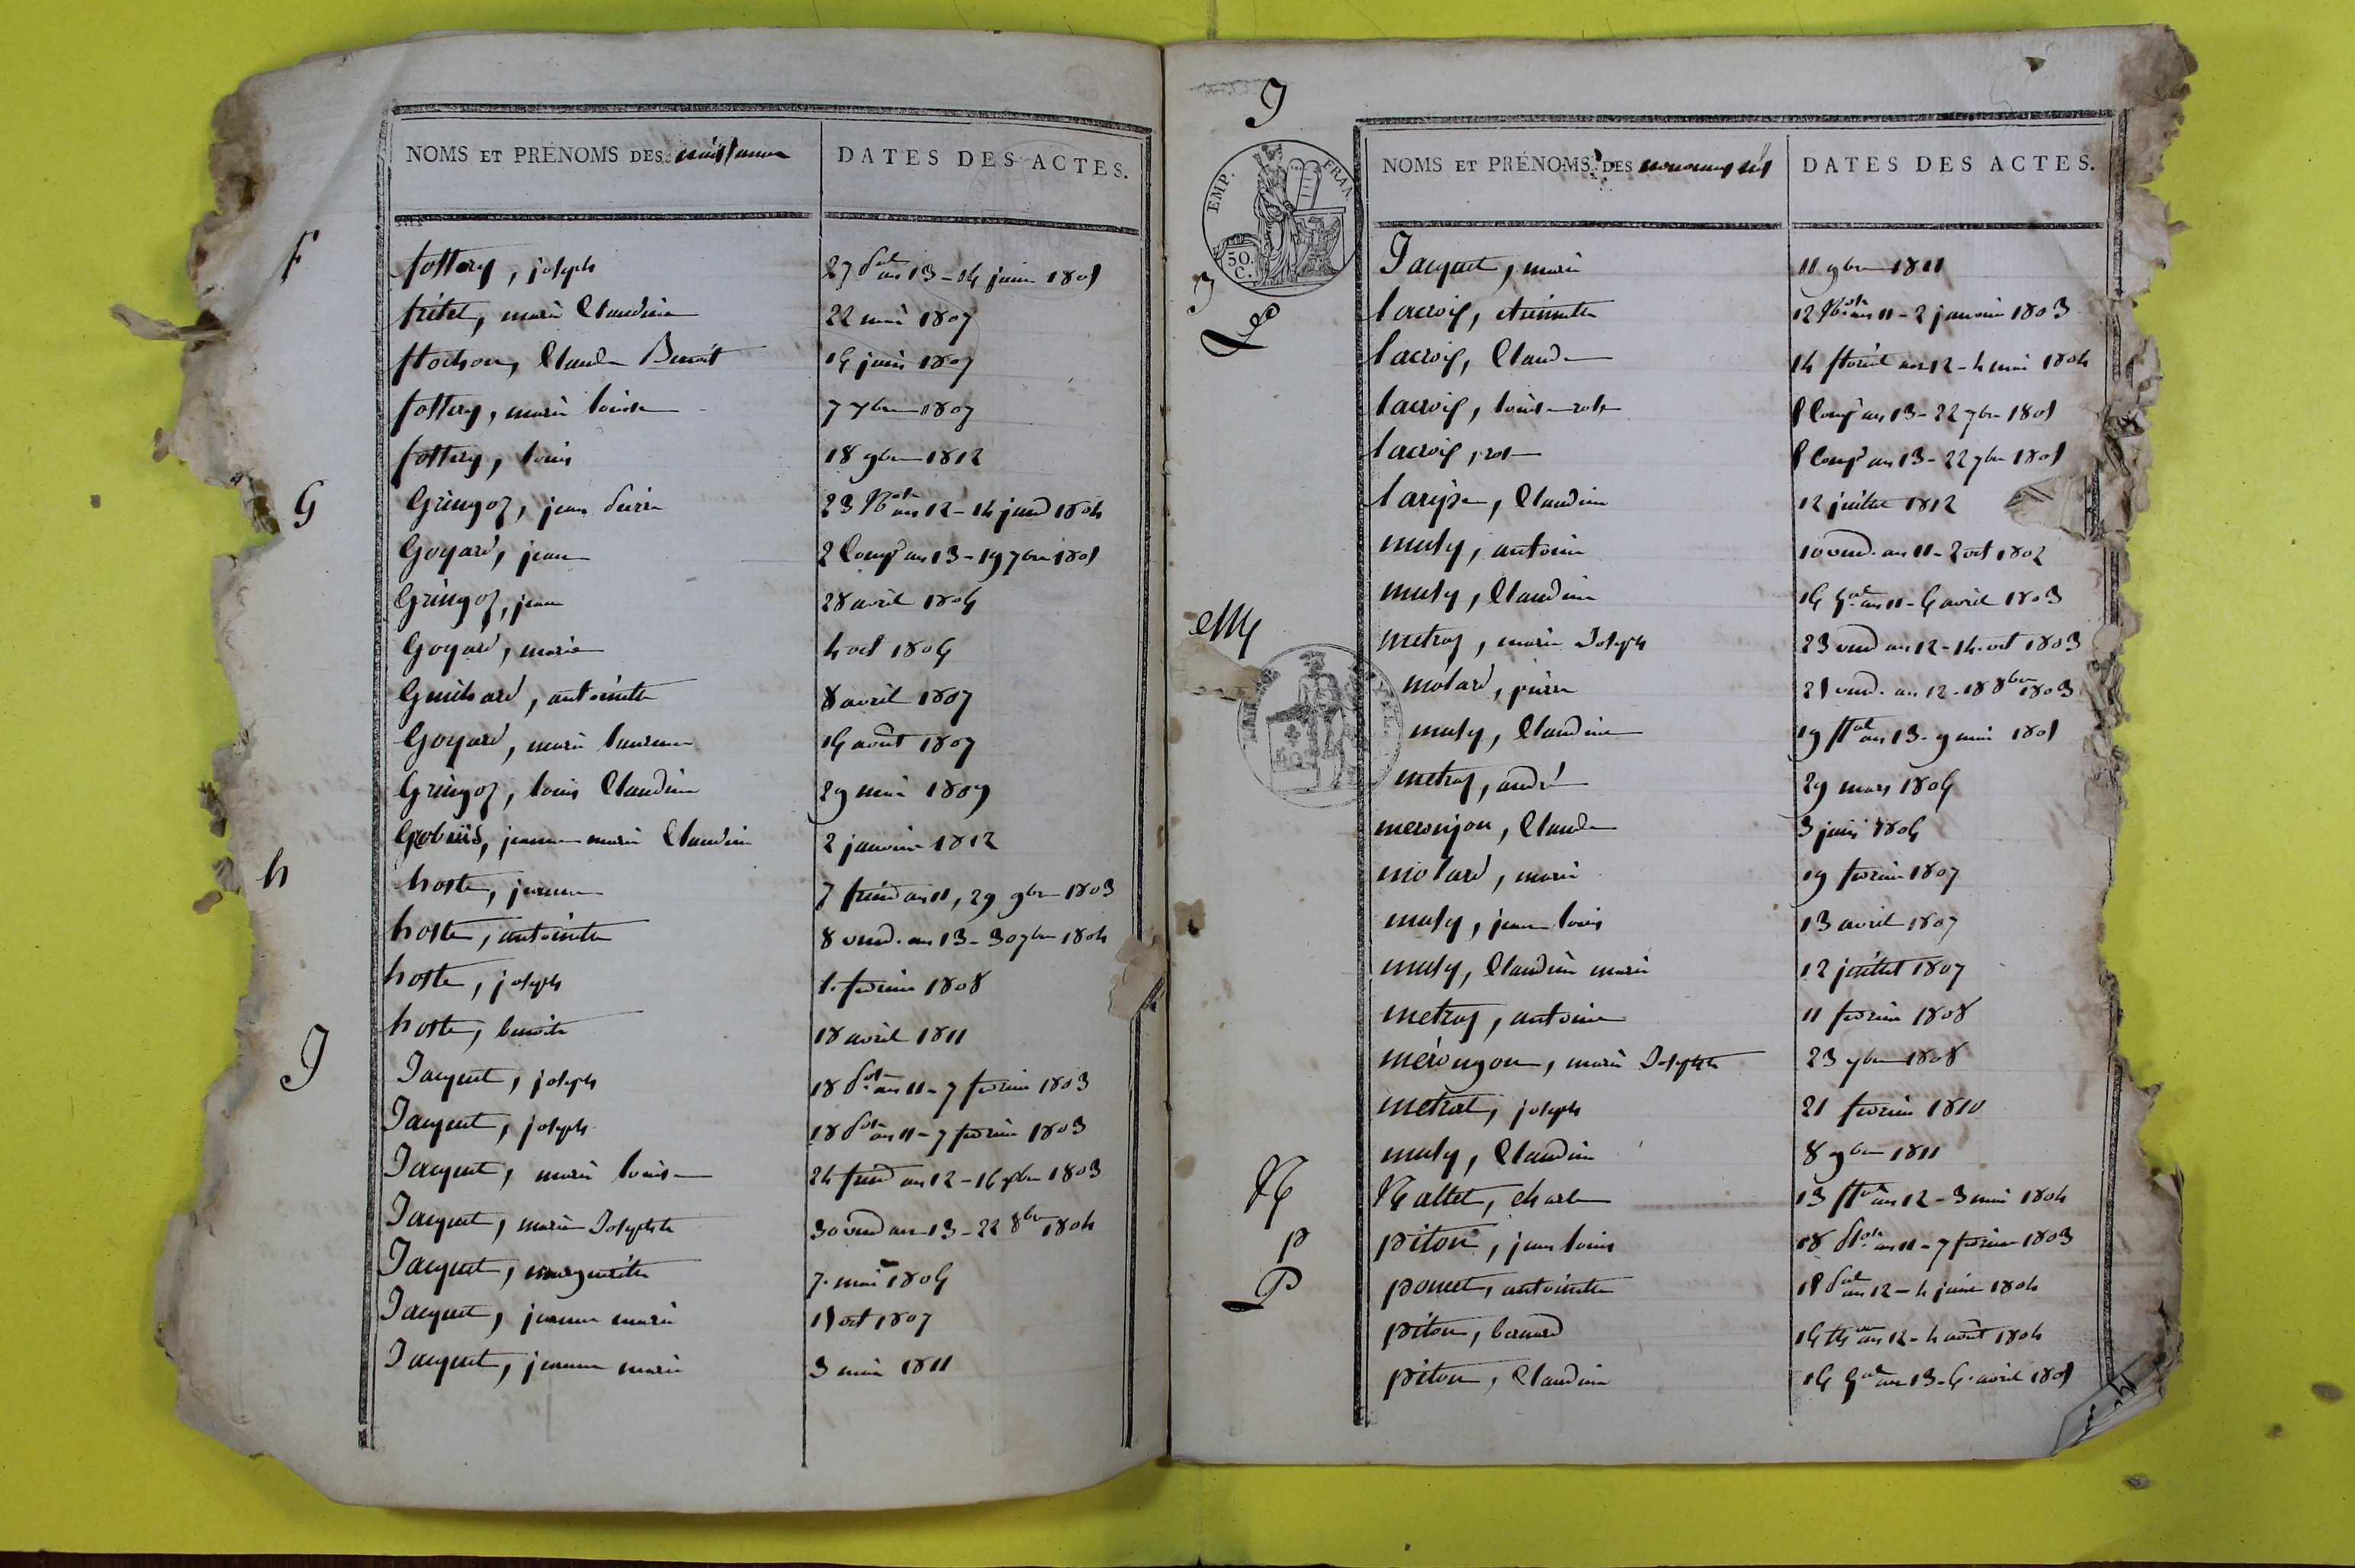 NOMS ET PRÉNOMS DES naissances
DATES DES ACTES.
F
fottery, joseph 27 an 13 - 16 juin 1805
fritet, marie Claudine 22 mai 1807
Claude Benoit 16 juin 1807
fottery, marie louise 7 7bre 1807
fottery, louis 18 9bre 1812
G
Gringoz, jean pierre 23 an 12 - 14 janv 1804
Goyard, jean 2 Comp an 13 - 19 7bre 1805
Gringoz, jean 28 avril 1806
Goyard, marie 4 oct 1806
Guichard, antoinette 8 avril 1807
Goyard, marie 16 août 1807
Gringoz, louis Claudine 29 mai 1809
jeanne marie Claudine 2 janvier 1812
h
hoste, jeanne 7 frim an 11, 29 9bre 1803
hoste, antoinette 8 vend. an 13 - 30 7bre 1804
hoste, joseph 1. fevrier 1808
hoste, benoite 18 avril 1811
J
Jacquet, joseph 18 an 11 - 7 fevrier 1803
Jacquet, joseph 18 an 11 - 7 fevrier 1803
Jacquet, marie louise 24 frim an 12 - 16 1803
Jacquet, marie Josephte 30 vend an 13 - 22 8bre 1804
Jacquet, marguerite 7. mai 1806
Jacquet, jeanne marie 15 oct 1807
Jacquet, jeanne marie 3 mai 1811
J
EMP. FRAN.
50. C.
NOMS ET PRÉNOMS DES
DATES DES ACTES.
J
Jacquet, marie 11 9bre 1811
L
lacroix, etiennette 12 an 11 - 2 janvier 1803
lacroix, Claude 14 floreal an 12 - 4 mai 1804
lacroix, louise rose 5 Comp an 13 - 22 7bre 1805
lacroix, rose 5 Comp an 13 - 22 7bre 1805
Claudine 12 juillet 1812
M
musy, antoine 10 vend. an 11 - 2 oct 1802
musy, Claudine 16 an 11 - 6 avril 1803
metraz, marie Joseph 23 vend an 12 - 14. oct 1803
molard, pierre 25 vend. an 12 - 18 8bre 1803
musy, Claudine 19 an 13. 9 mai 1805
metraz, andré 29 mars 1806
Claude 3 juin 1806
molard, marie 19 fevrier 1807
musy, jean louis 13 avril 1807
musy, Claudine marie 12 juillet 1807
metraz, antoine 11 fevrier 1808
marie Josephte 23 1808
metrat, joseph 21 fevrier 1810
musy, Claudine 8 9bre 1811
N
Nallet, charle 13 an 12 - 3 mai 1804
p
piton, jean louis 18 an 11 - 7 fevrier 1803
P
antoinette 15 an 12 - 4 juin 1804
piton, bernard 16 an 12 - 4 août 1804
piton, Claudine 16 an 13 - 6. avril 1805